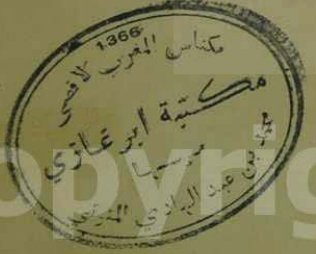 1366
مكناس المغرب الاقصى
مكتبة ابن غازي
مؤسسها
محمد بن عبد الهادي المنوني
copyrig